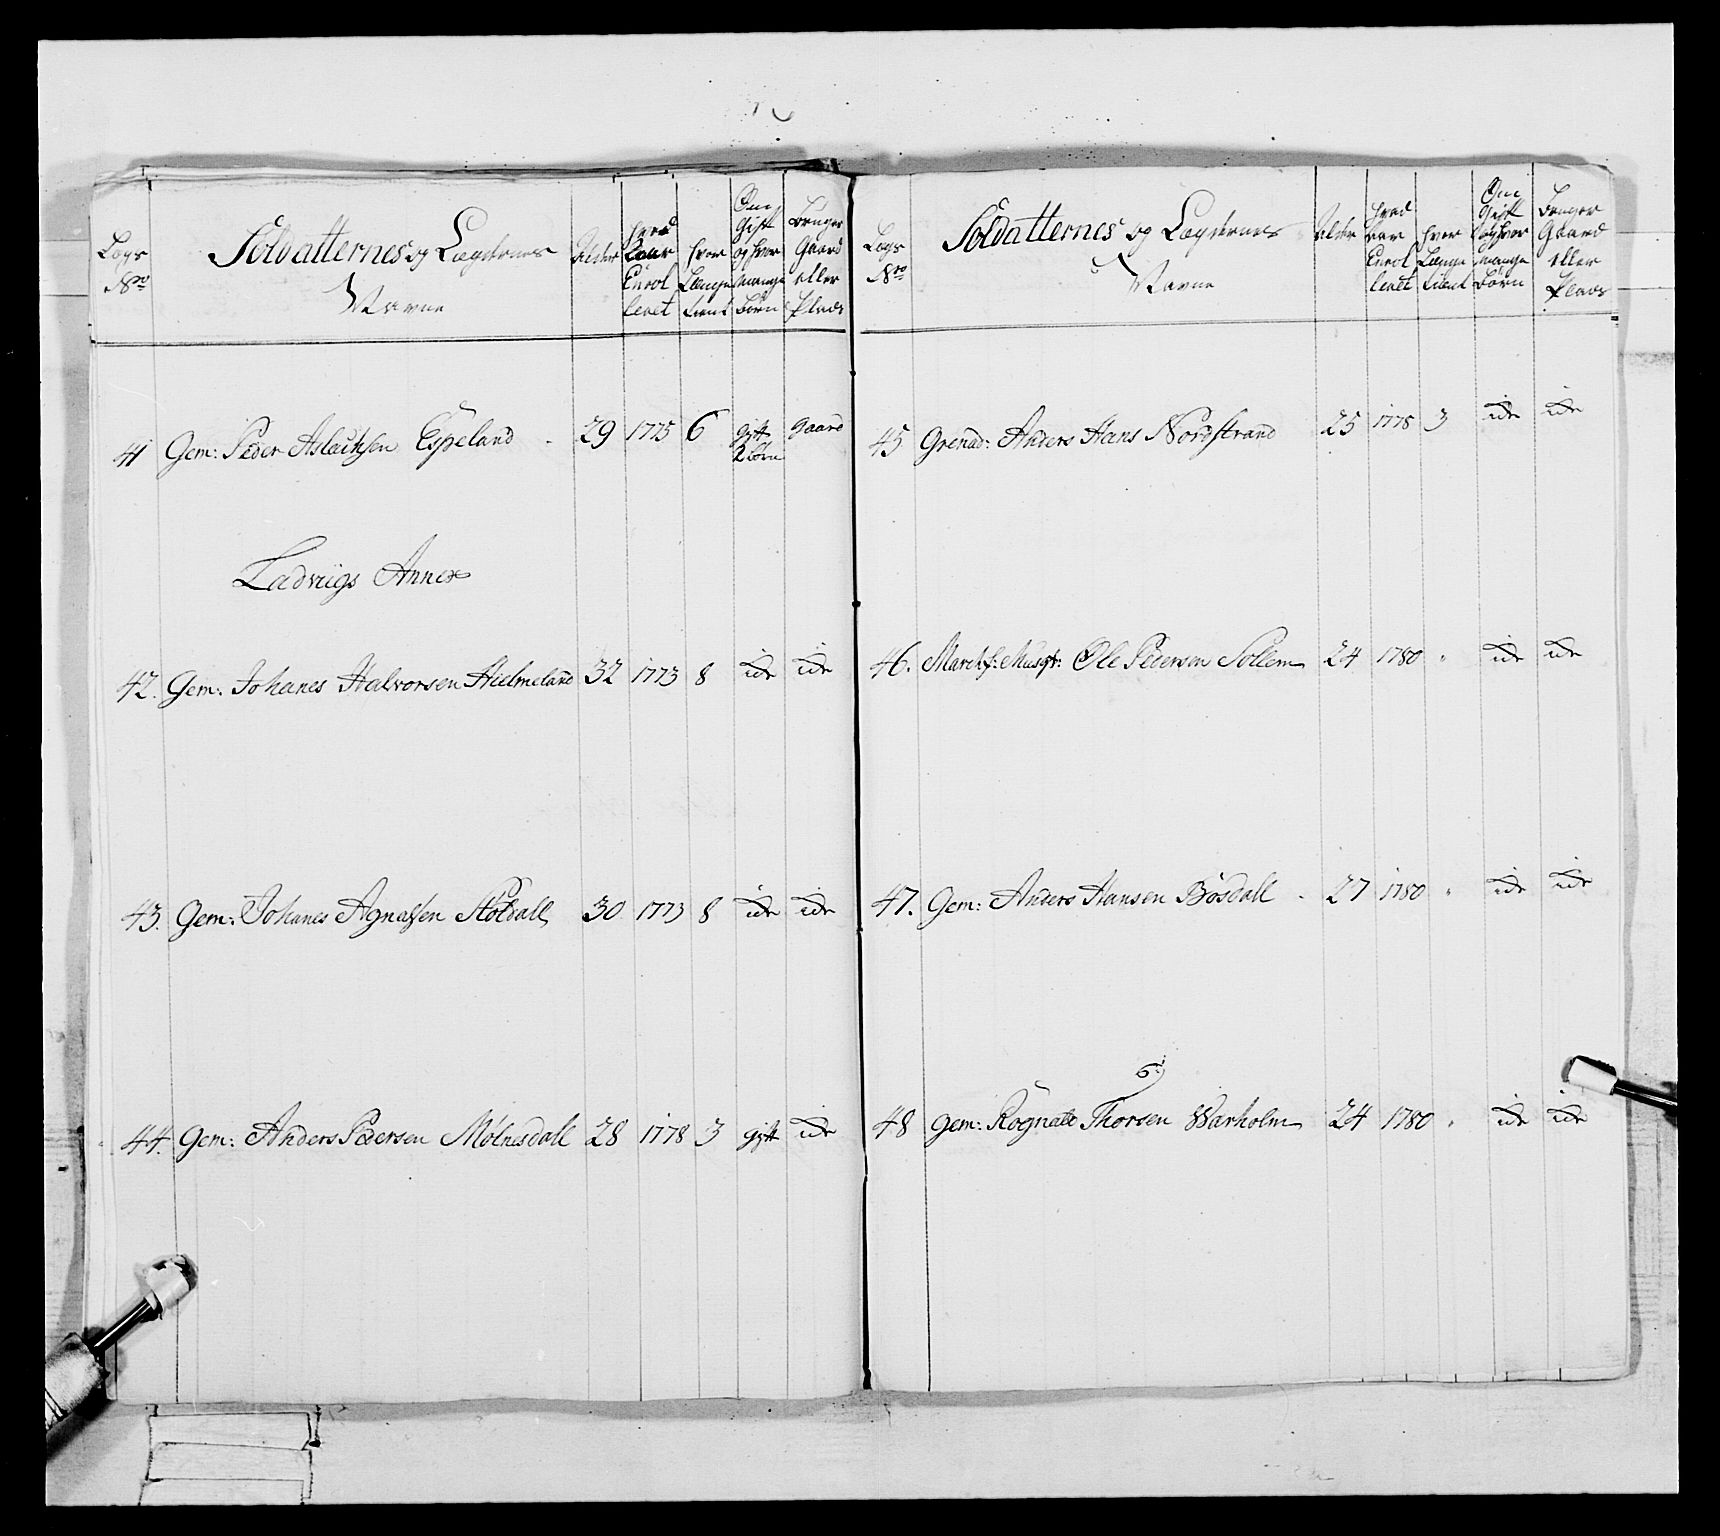 Lægs No
Soldatternes og Lægdernes Navne
Alder
hvad Aar Enrolleret
hvor Længe tient
Om Gift og hvor mange Børn
bruger Gaard eller Plads
41 Gem: Peder Aslachsen Espeland 29 1775 6 gift 2 börn gaard
Ladviigs Annex
42. Gem: Johanes Halvorsen Hielmeland 32 1773 8 ide ide
43. Gem: Johanes Agnalsen 30 1773 8 ide ide
44. Gem: Anders Pedersen Mölnesdall 28 1778 3 gift ide
Lægs No
Soldatternes og Lægdernes Navne
Alder
hvad Aar Enrolleret
hvor Længe tient
Om Gift og hvor mange Børn
bruger Gaard eller Plads
45 Grenad: Anders Hans Nordstrand 25 1778 3 ide ide
46. Musqt: Ole Pedersen Sollem 24 1780 " ide ide
47. Gem: Anders Hansen Bösdall 27 1780 " ide ide
48 gem: Rognald Thorsen Warholm 24 1780 " ide ide